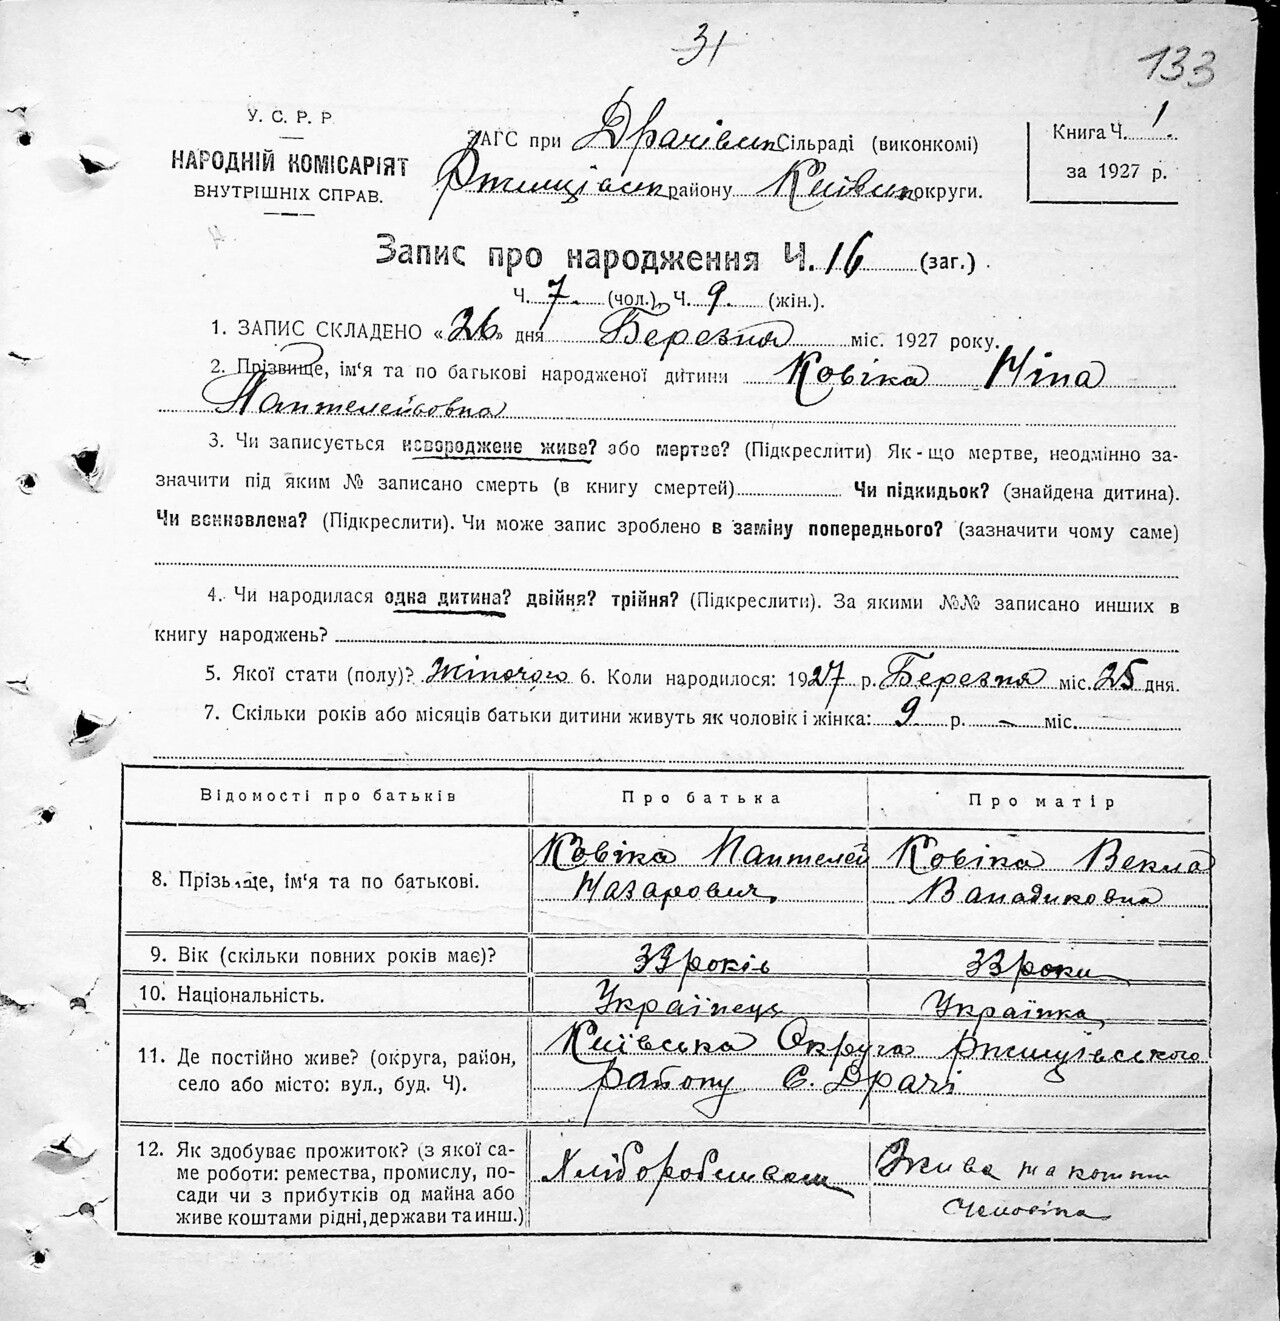 31
133
У. С. Р. Р
НАРОДНІЙ КОМІСАРІЯТ
ВНУТРІШНІХ СПРАВ.
ЗАГС при Драчівськ Сільраді (виконкомі)
Ржищівськ району Київськ округи.
Книга Ч. 1.
за 1927 р.
Запис про народження Ч. 16 (заг.).
Ч. 7. (чол.), Ч. 9. (жін.).
1. ЗАПИС СКЛАДЕНО «26» дня Березня міс. 1927 року.
2. Прізвище, ім'я та по батькові народженої дитини Ковіка Ніна
Пантелейовна
3. Чи записується новороджене живе? або мертве? (Підкреслити) Як-що мертве, неодмінно за-
значити під яким № записано смерть (в книгу смертей) Чи підкидьок? (знайдена дитина).
Чи вснновлена? (Підкреслити). Чи може запис зроблено в заміну попереднього? (зазначити чому саме)
4. Чи народилася одна дитина? двійня? трійня? (Підкреслити). За якими №№ записано инших в
книгу народжень?
5. Якої стати (полу)? Жіночого 6. Коли народилося: 1927 р. Березня міс. 25 дня.
7. Скільки років або місяців батьки дитини живуть як чоловік і жінка: 9 р. – міс.
Відомості про батьків Про батька Про матір
8. Прізьище, ім'я та по батькові. Ковіка Пантелей Назарович Ковіка Векла
9. Вік (скільки повних років має)? 33 років 33 роки
10. Національність. Українець Українка
11. Де постійно живе? (округа, район, Київська Округа Ржищівського
село або місто: вул., буд. Ч). району С. Драчі
12. Як здобуває прожиток? (з якої са- Хліборобством Жива на кошти
ме роботи: ремества, промислу, по- Чоловіка
сади чи з прибутків од майна або
живе коштами рідні, держави та инш.)